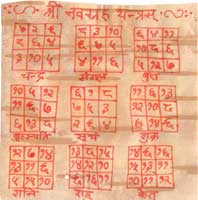 श्री नवग्रह यन्त्रम्
७ २ ९ ८ ३ १० ९ ४ ११
८ ६ ४ ९ ७ ५ १० ८ ६
३ १० ५ ४ ११ ६ ५ १२ ७
चन्द्र मंगल बुध
१० ५ १२ ६ १ ८ ११ ६ १३
११ ९ ७ ७ ५ ३ १२ १० ८
६ १३ ८ २ ९ ४ ७ १४ ९
बृहस्पति सूर्य शुक्र
१२ ७ १४ १३ ८ १५ १४ ९ १६
१३ ११ ९ १४ १२ १० १५ १३ ११
८ १५ १० ९ १६ ११ १० १७ १२
शनि राहु केतु